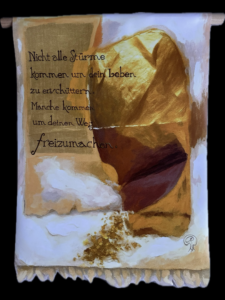 Nicht alle Stürme
kommen um dein Leben
zu erschüttern.
Manche kommen
um deinen Weg
freizumachen.